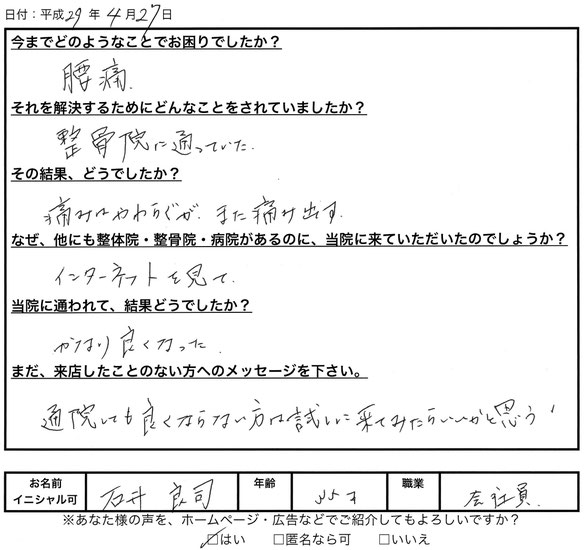 日付：平成29年4月27日
今までどのようなことでお困りでしたか？
腰痛.
それを解決するためにどんなことをされていましたか？
整骨院に通っていた.
その結果、どうでしたか？
痛みはやわらぐが、また痛み出す.
なぜ、他にも整体院・整骨院・病院があるのに、当院に来ていただいたのでしょうか？
インターネットを見て.
当院に通われて、結果どうでしたか？
かなり良くなった.
まだ、来店したことのない方へのメッセージを下さい。
通院しても良くならない方は試しに来てみたらいいかと思う
お名前 イニシャル可 石井 良司 年齢 才 職業 会社員.
※あなた様の声を、ホームページ・広告などでご紹介してもよろしいですか？
☑はい □匿名なら可 □いいえ